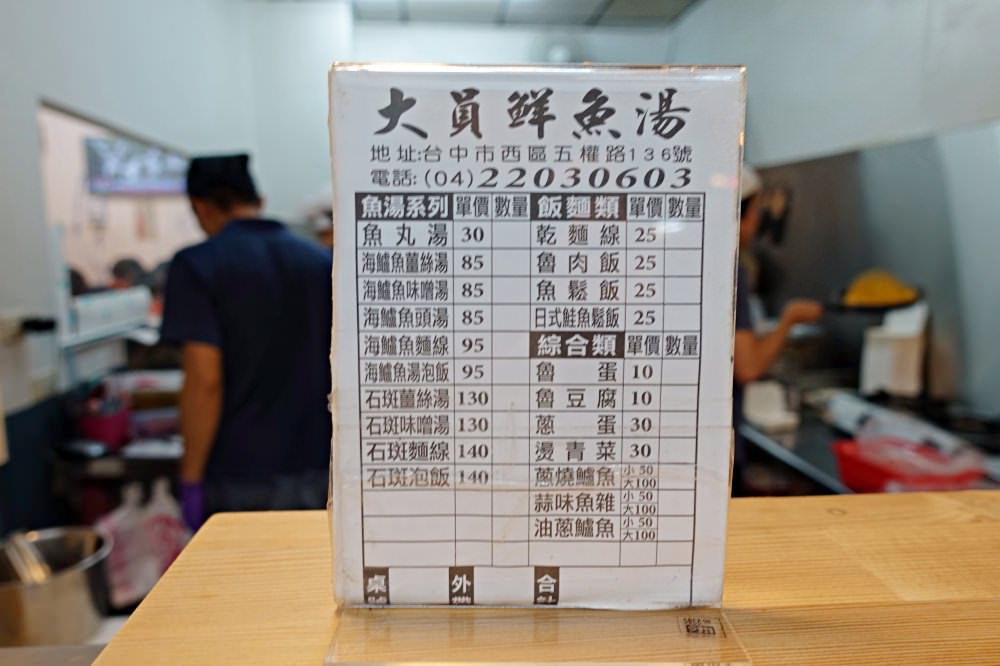 大員鮮魚湯
地址:台中市西區五權路136號
電話:(04)22030603
魚湯系列 單價 數量 飯麵類 單價 數量
魚丸湯 30 乾麵線 25
海鱸魚薑絲湯 85 魯肉飯 25
海鱸魚味噌湯 85 魚鬆飯 25
海鱸魚頭湯 85 日式鮭魚鬆飯 25
海鱸魚麵線 95 綜合類 單價 數量
海鱸魚湯泡飯 95 魯蛋 10
石斑薑絲湯 130 魯豆腐 10
石斑味噌湯 130 蔥蛋 30
石斑麵線 140 燙青菜 30
石斑泡飯 140 蔥燒鱸魚 小50 大100
蒜味魚雜 小50 大100
油蔥鱸魚 小50 大100
桌號 外帶 合計